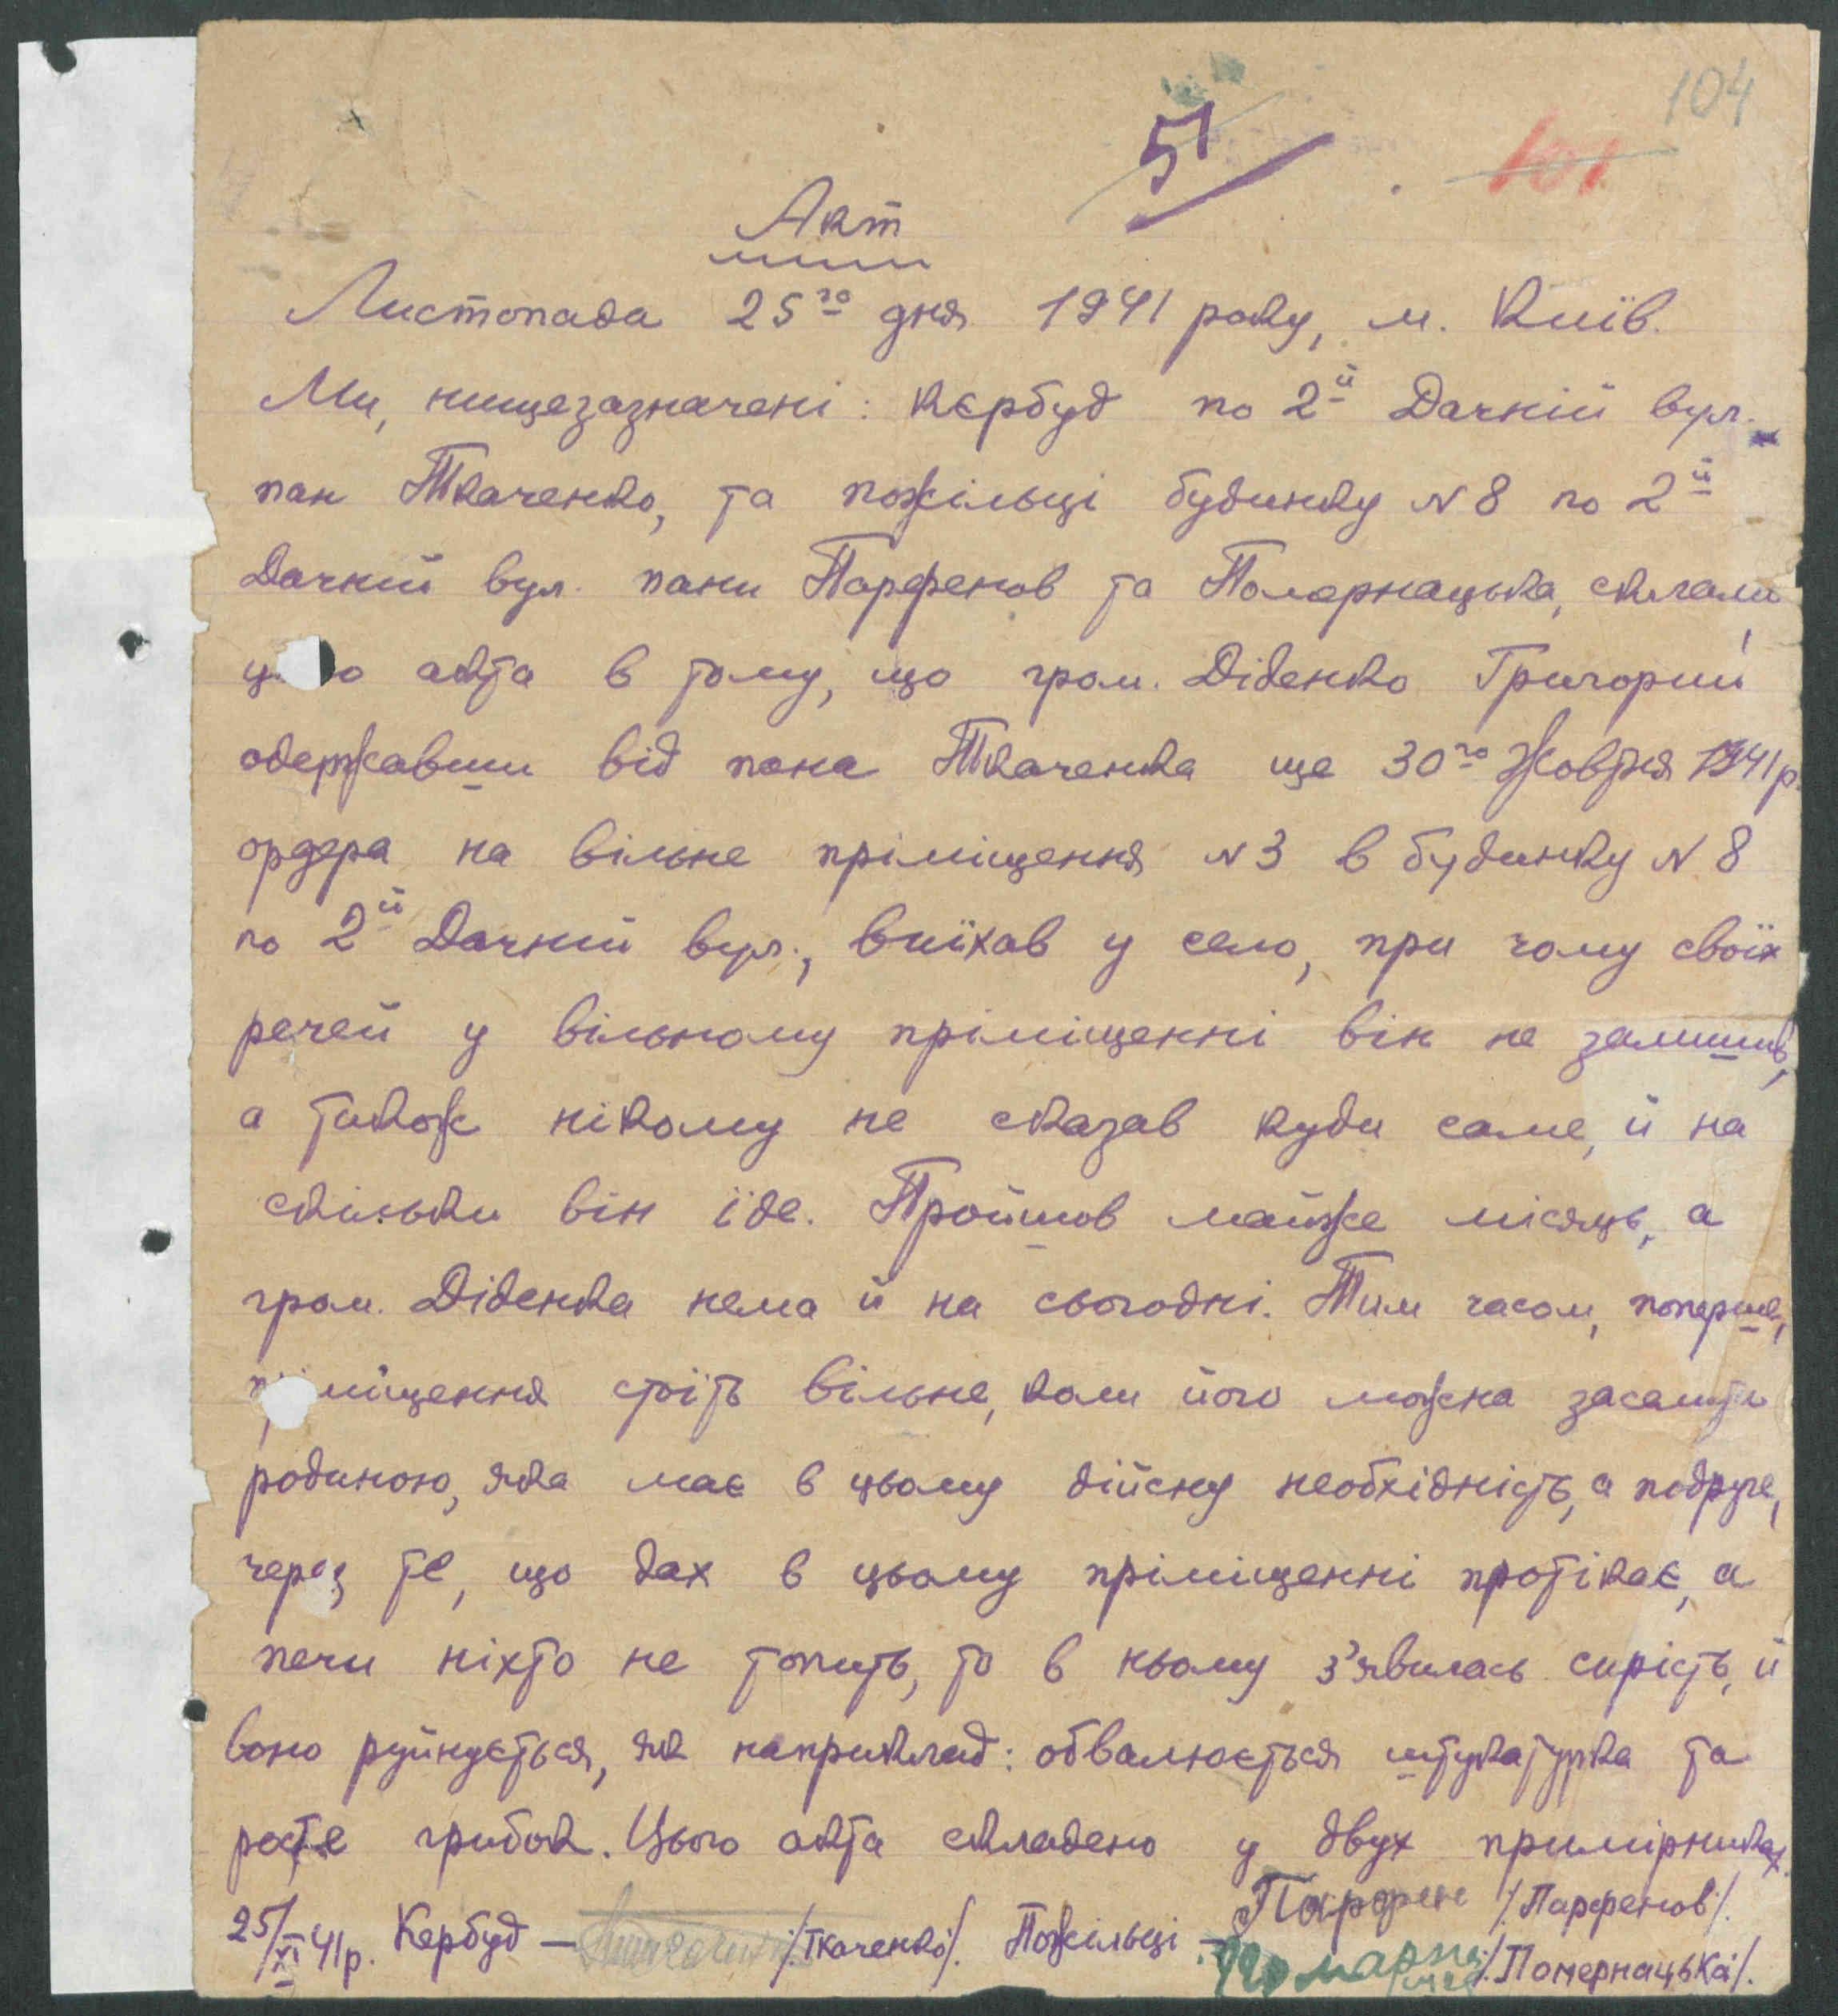 104
51
101
Акт
Листопада 25го дня 1941 року, м. Київ.
Ми, нищезазначені: кєрбуд по 2й Дачній вул.
пан Ткаченко, та пожільці будинку N 8 по 2й
Дачній вул. пани Парфенов та Помернацька, склали
ц о акта в тому, що гром. Діденко Григорий
одержавши від пана Ткаченка ще 30го Жовтня 1941 р.
ордера на вільне пріміщення N 3 в будинку N 8
по 2й Дачній вул., виїхав у село, при чому своїх
речей у вільному пріміщенні він не залишив,
а також нікому не сказав куди саме, й на
скільки він їде. Пройшов майже місяць, а
гром. Діденка нема й на сьогодні. Тим часом, поперше,
пріміщення стоїть вільне, коли його можна заселити
родиною, яка має в цьому дійсну необхідність, а подруге,
через те, що дах в цьому пріміщенні протікає, а
печи ніхто не топить, то в ньому з'явилась сирість, й
воно руйнується, як наприклад: обвалюється штукатурка та
росте грибок. Цього акта складено у двух примірниках.
25/XI 41р. Кербуд – /Ткаченко/. Пожільці – Парфен /Парфенов/.
/Помернацька/.